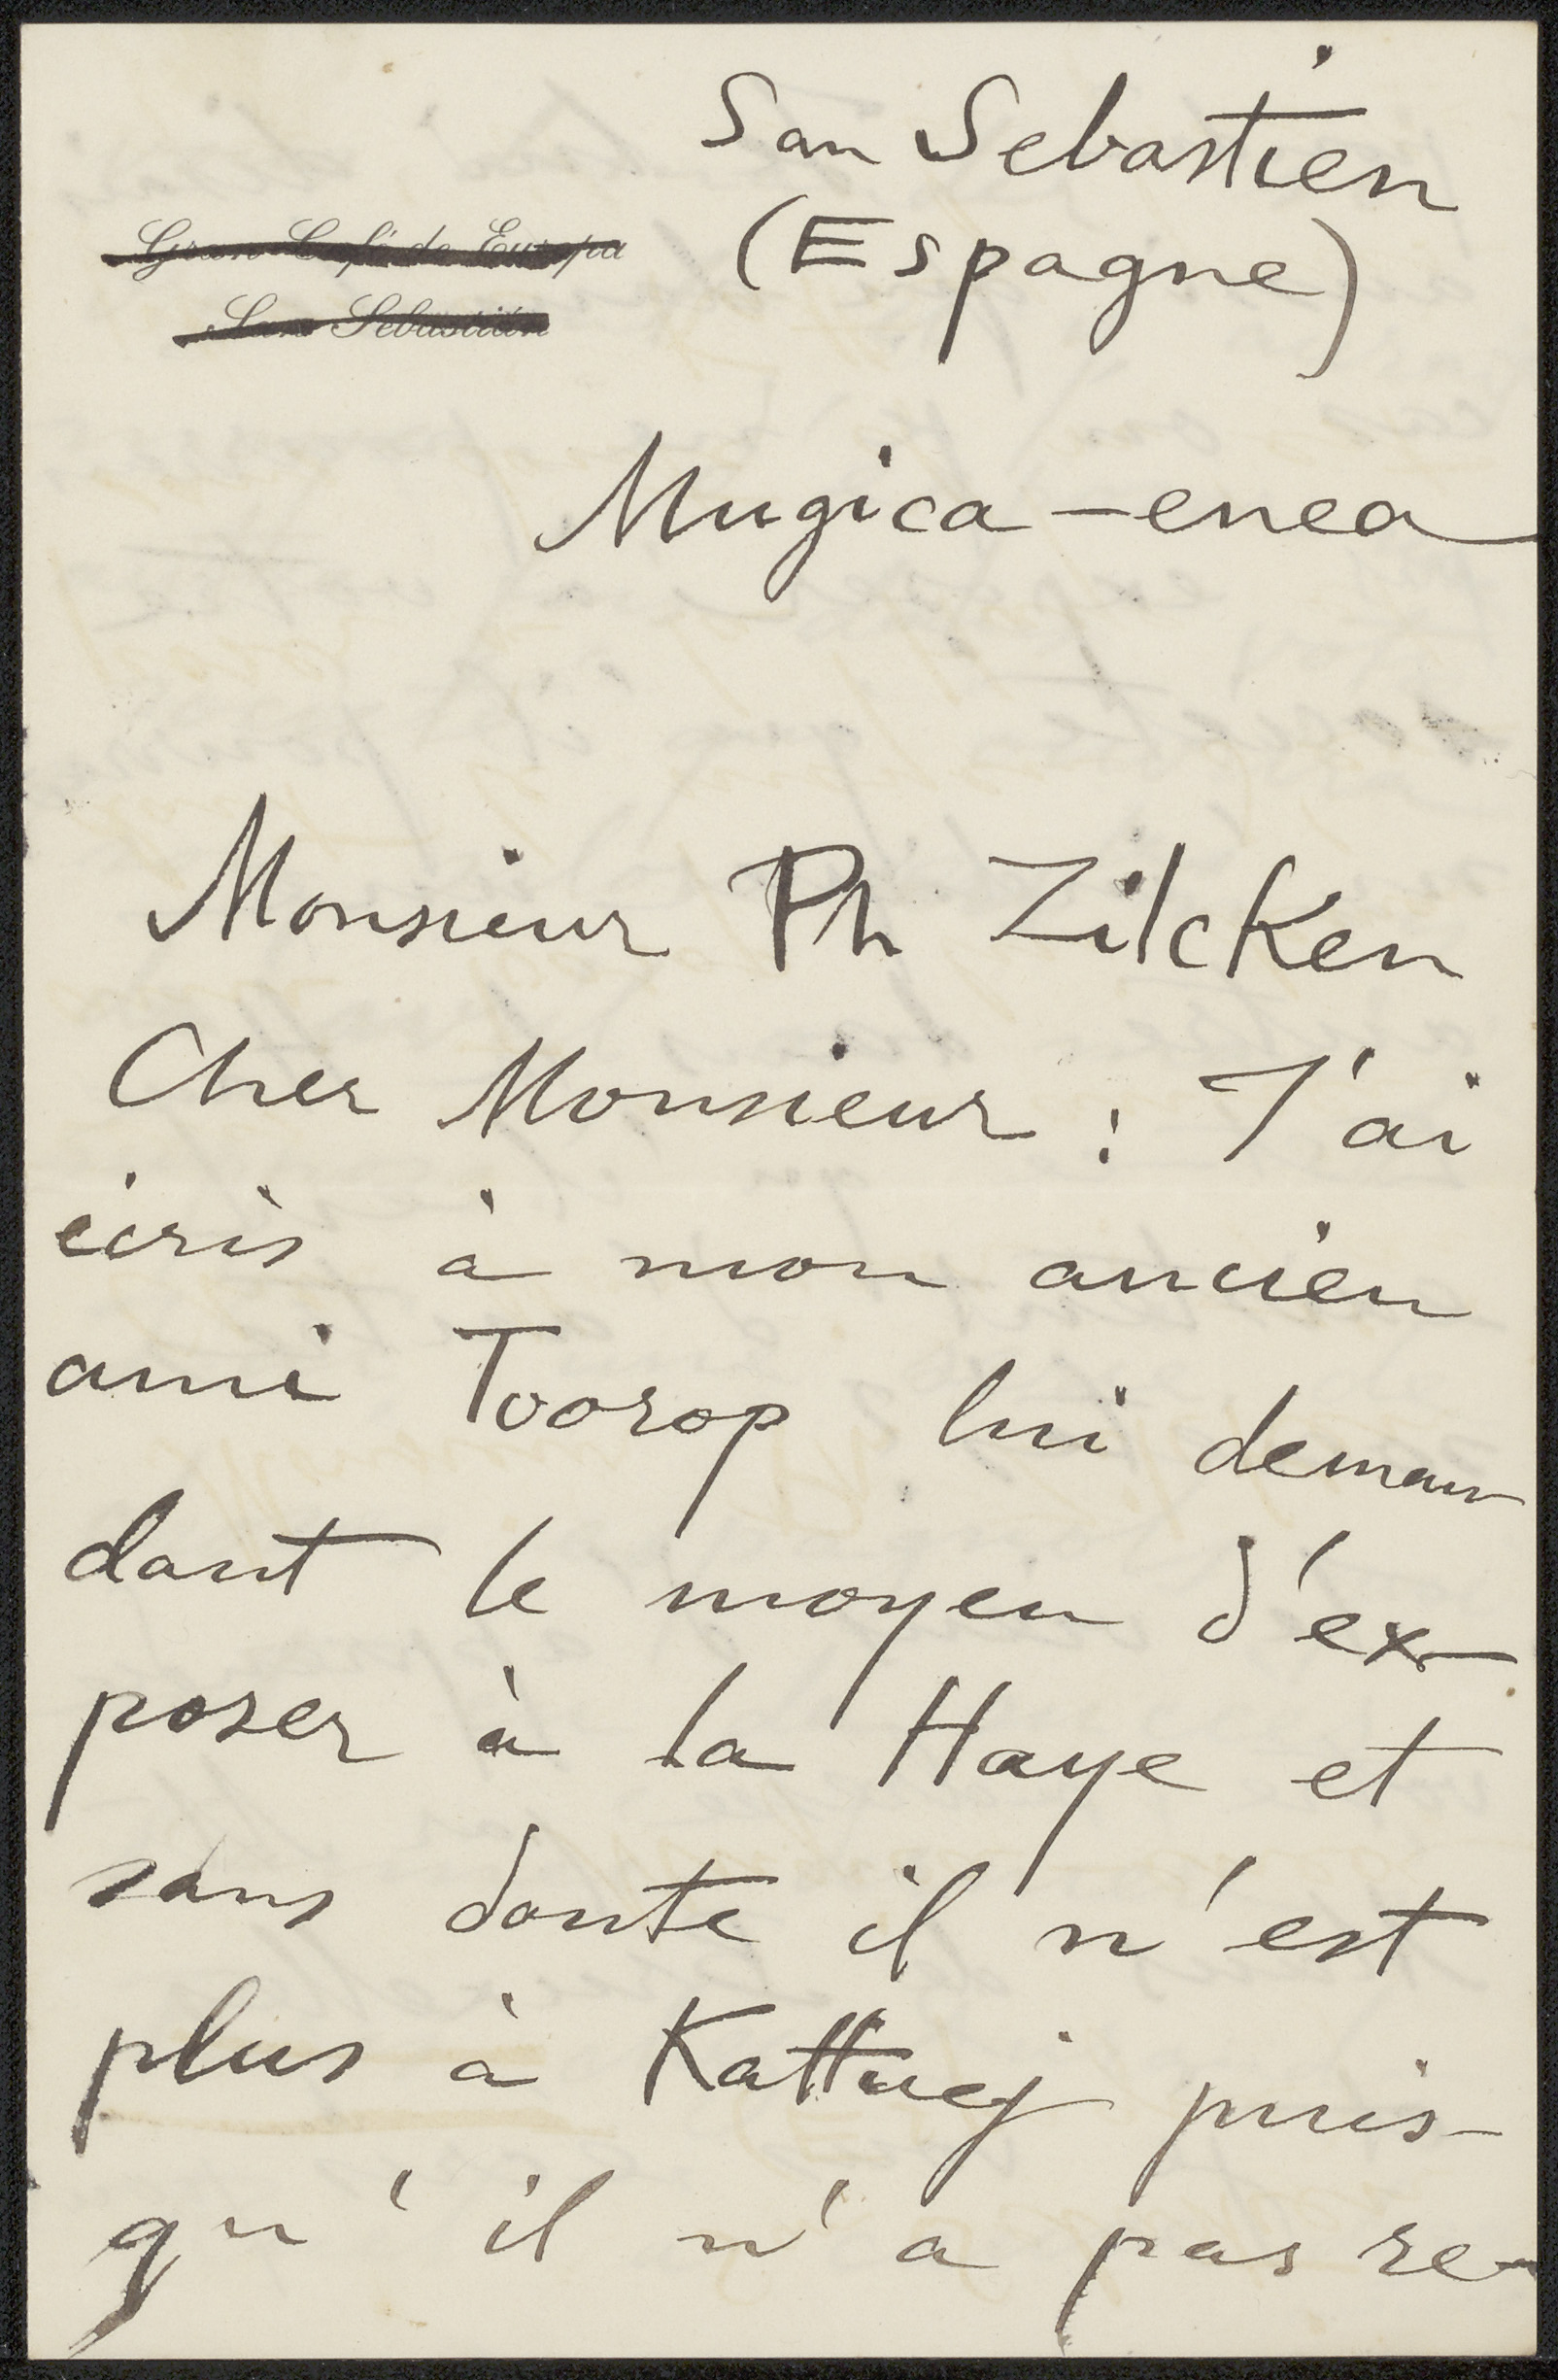 San Sebastien
(Espagne)
Gran Café de Europa
San Sebastián
Mugica-enea
Monsieur Ph Zilcken
Cher Monsieur : J'ai
écris à mon ancien
ami Toorop lui deman
dant le moyen d'ex-
poser à la Haye et
sans doute il n'est
plus à Kattuej puis-
qu'il n'a pas re-